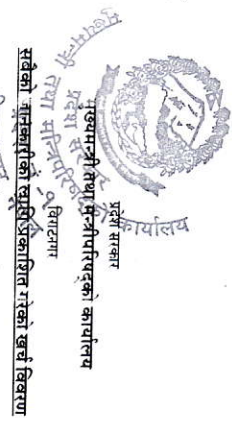 प्रदेश सरकार
मुख्यमन्त्री तथा मन्त्रीपरिषद्को कार्यालय
विराटनगर
सर्वैको जानकारीको लागि प्रकाशित गरेको खर्च विवरण
प्रदेश सरकार
मुख्यमन्त्री तथा मन्त्रिपरिषद्को कार्यालय